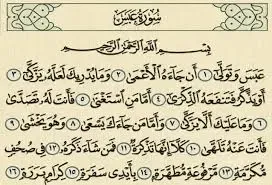 سُورَةُ عَبَسَ
بِسْمِ اللَّهِ الرَّحْمَٰنِ الرَّحِيمِ
عَبَسَ وَتَوَلَّىٰ ١ أَن جَاءَهُ الْأَعْمَىٰ ٢ وَمَا يُدْرِيكَ لَعَلَّهُ يَزَّكَّىٰ ٣
أَوْ يَذَّكَّرُ فَتَنفَعَهُ الذِّكْرَىٰ ٤ أَمَّا مَنِ اسْتَغْنَىٰ ٥ فَأَنتَ لَهُ تَصَدَّىٰ
٦ وَمَا عَلَيْكَ أَلَّا يَزَّكَّىٰ ٧ وَأَمَّا مَن جَاءَكَ يَسْعَىٰ ٨ وَهُوَ يَخْشَىٰ
٩ فَأَنتَ عَنْهُ تَلَهَّىٰ ١٠ كَلَّا إِنَّهَا تَذْكِرَةٌ ١١ فَمَن شَاءَ ذَكَرَهُ ١٢ فِي صُحُفٍ
مُّكَرَّمَةٍ ١٣ مَّرْفُوعَةٍ مُّطَهَّرَةٍ ١٤ بِأَيْدِي سَفَرَةٍ ١٥ كِرَامٍ بَرَرَةٍ ١٦